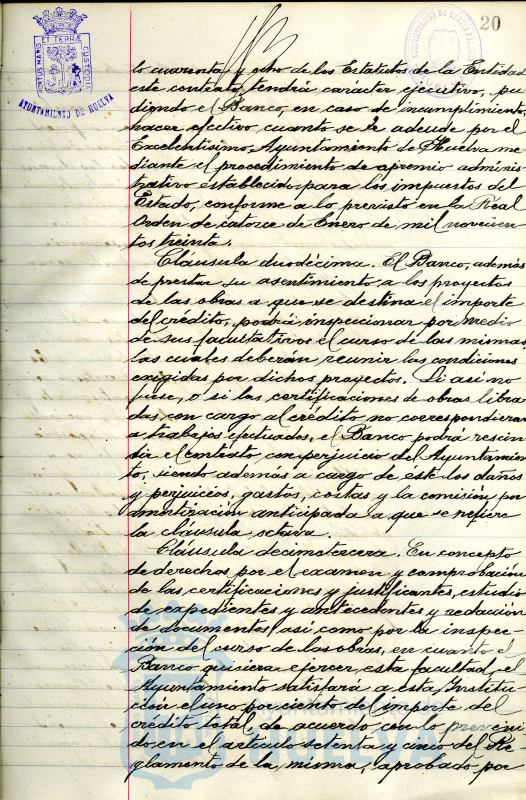 20
PORTUS MARIS ET TERRÆ CUSTODIA
AYUNTAMIENTO DE HUELVA
lo cuarenta y ocho de los Estatutos de la Entidad
este contrato tendrá carácter ejecutivo, pu-
diendo el Banco, en caso de incumplimiento,
hacer efectivo cuanto se le adeude por el
Excelentísimo Ayuntamiento de Huelva me-
diante el procedimiento de apremio adminis-
trativo establecido para los impuestos del
Estado, conforme a lo previsto en la Real
Orden de catorce de Enero de mil novecien-
tos treinta.
Cláusula duodécima. El Banco, además
de prestar su asentimiento a los proyectos
de las obras a que se destina el importe
del crédito, podrá inspeccionar por medio
de sus facultativos el curso de las mismas,
las cuales deberán reunir las condiciones
exigidas por dichos proyectos. Si así no
fuese, o si las certificaciones de obras libra-
das con cargo al crédito no correspondieran
a trabajos efectuados, el Banco podrá rescin-
dir el contrato con perjuicio del Ayuntamien-
to, siendo además a cargo de éste los daños
y perjuicios, gastos, costas y la comisión por
amortización anticipada a que se refiere
la cláusula octava.
Cláusula decimotercera. En concepto
de derechos por el examen y comprobación
de las certificaciones y justificantes, estudio
de expedientes y antecedentes y redacción
de documentos, así como por la inspec-
ción del curso de las obras, en cuanto el
Banco quisiera ejercer esta facultad, el
Ayuntamiento satisfará a esta Institu-
ción el uno por ciento del importe del
crédito total, de acuerdo con lo preveni-
do en el artículo setenta y cinco del Re-
glamento de la misma, aprobado por
HUELVA